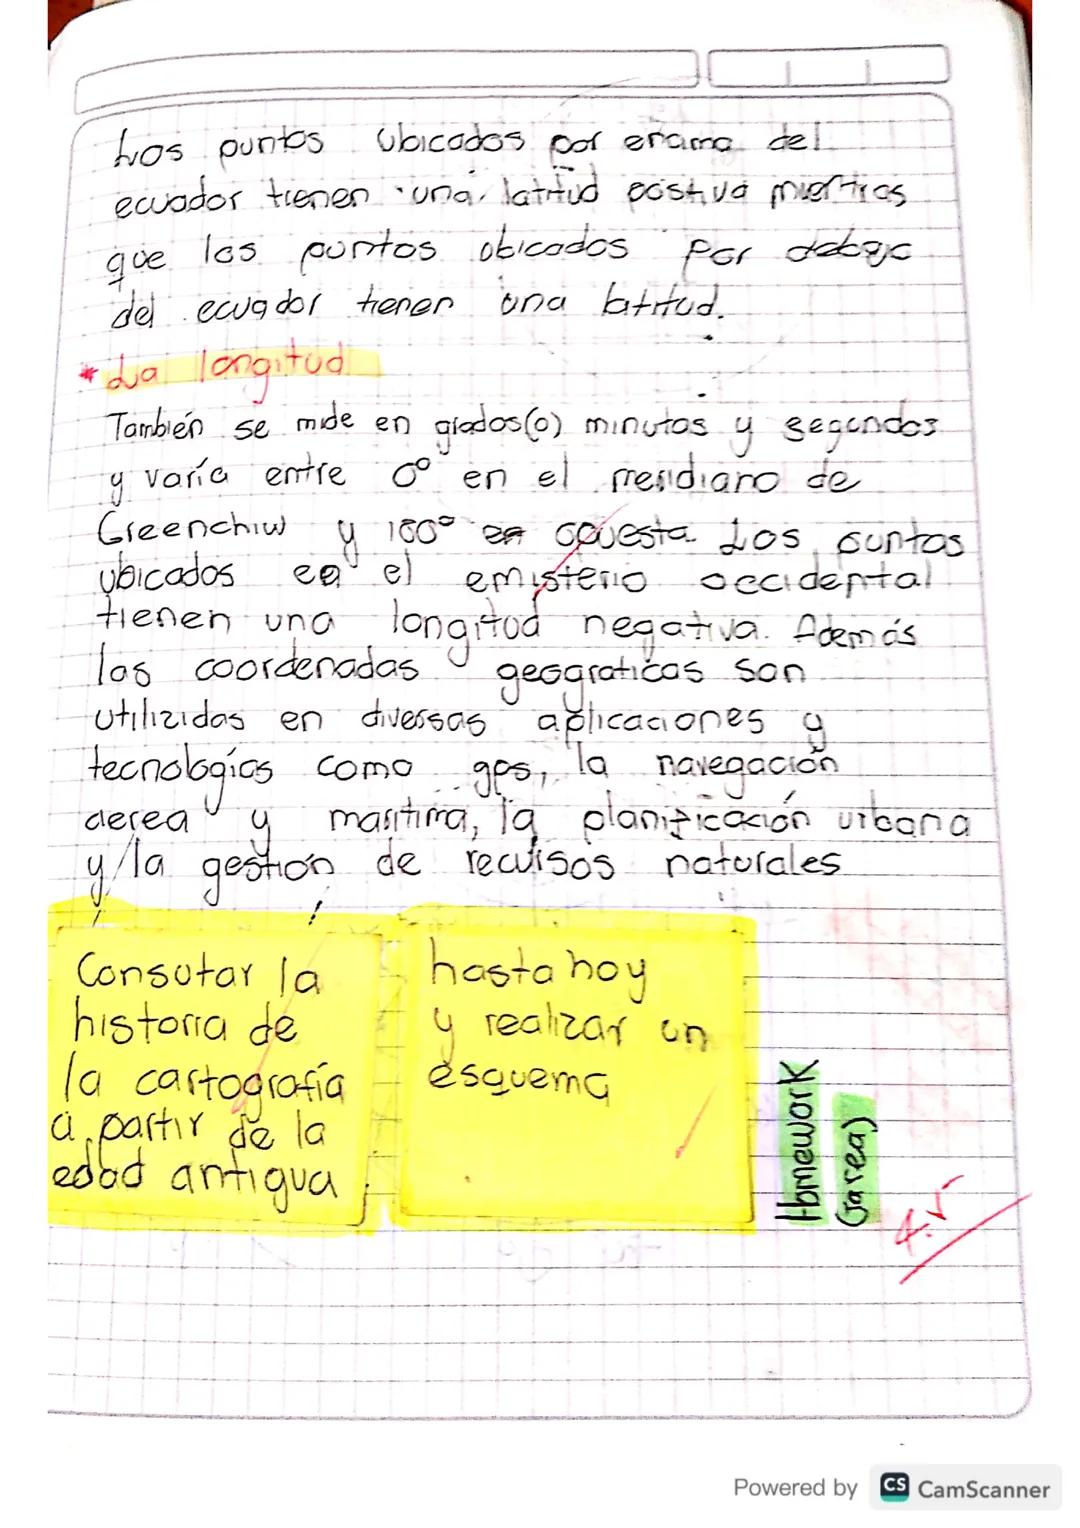 Los puntos ubicados por enama del
ecuador tienen una latitud positiva mientras
que los puntos obicados por debajo
del ecuador tienen una latitud.
* La longitud
También se mide en grados(o) minutos y segundos
y varía entre 0° en el meridiano de
Greenchiw y 180° en opuesta. Los puntos
ubicados en el emisterio occidental
tienen una longitud negativa. Además
las coordenadas geograticas son
utilizidas en diversas aplicaciones y
tecnologías como gps, la navegación
aerea y maritima, la planificación urbana
y la gestión de recursos naturales
Consutar la
historia de
la cartografía
a partir de la
edad antigua
hasta hoy
y realizar un
esquema
Homework
(tarea)
4.5
Powered by CS CamScanner